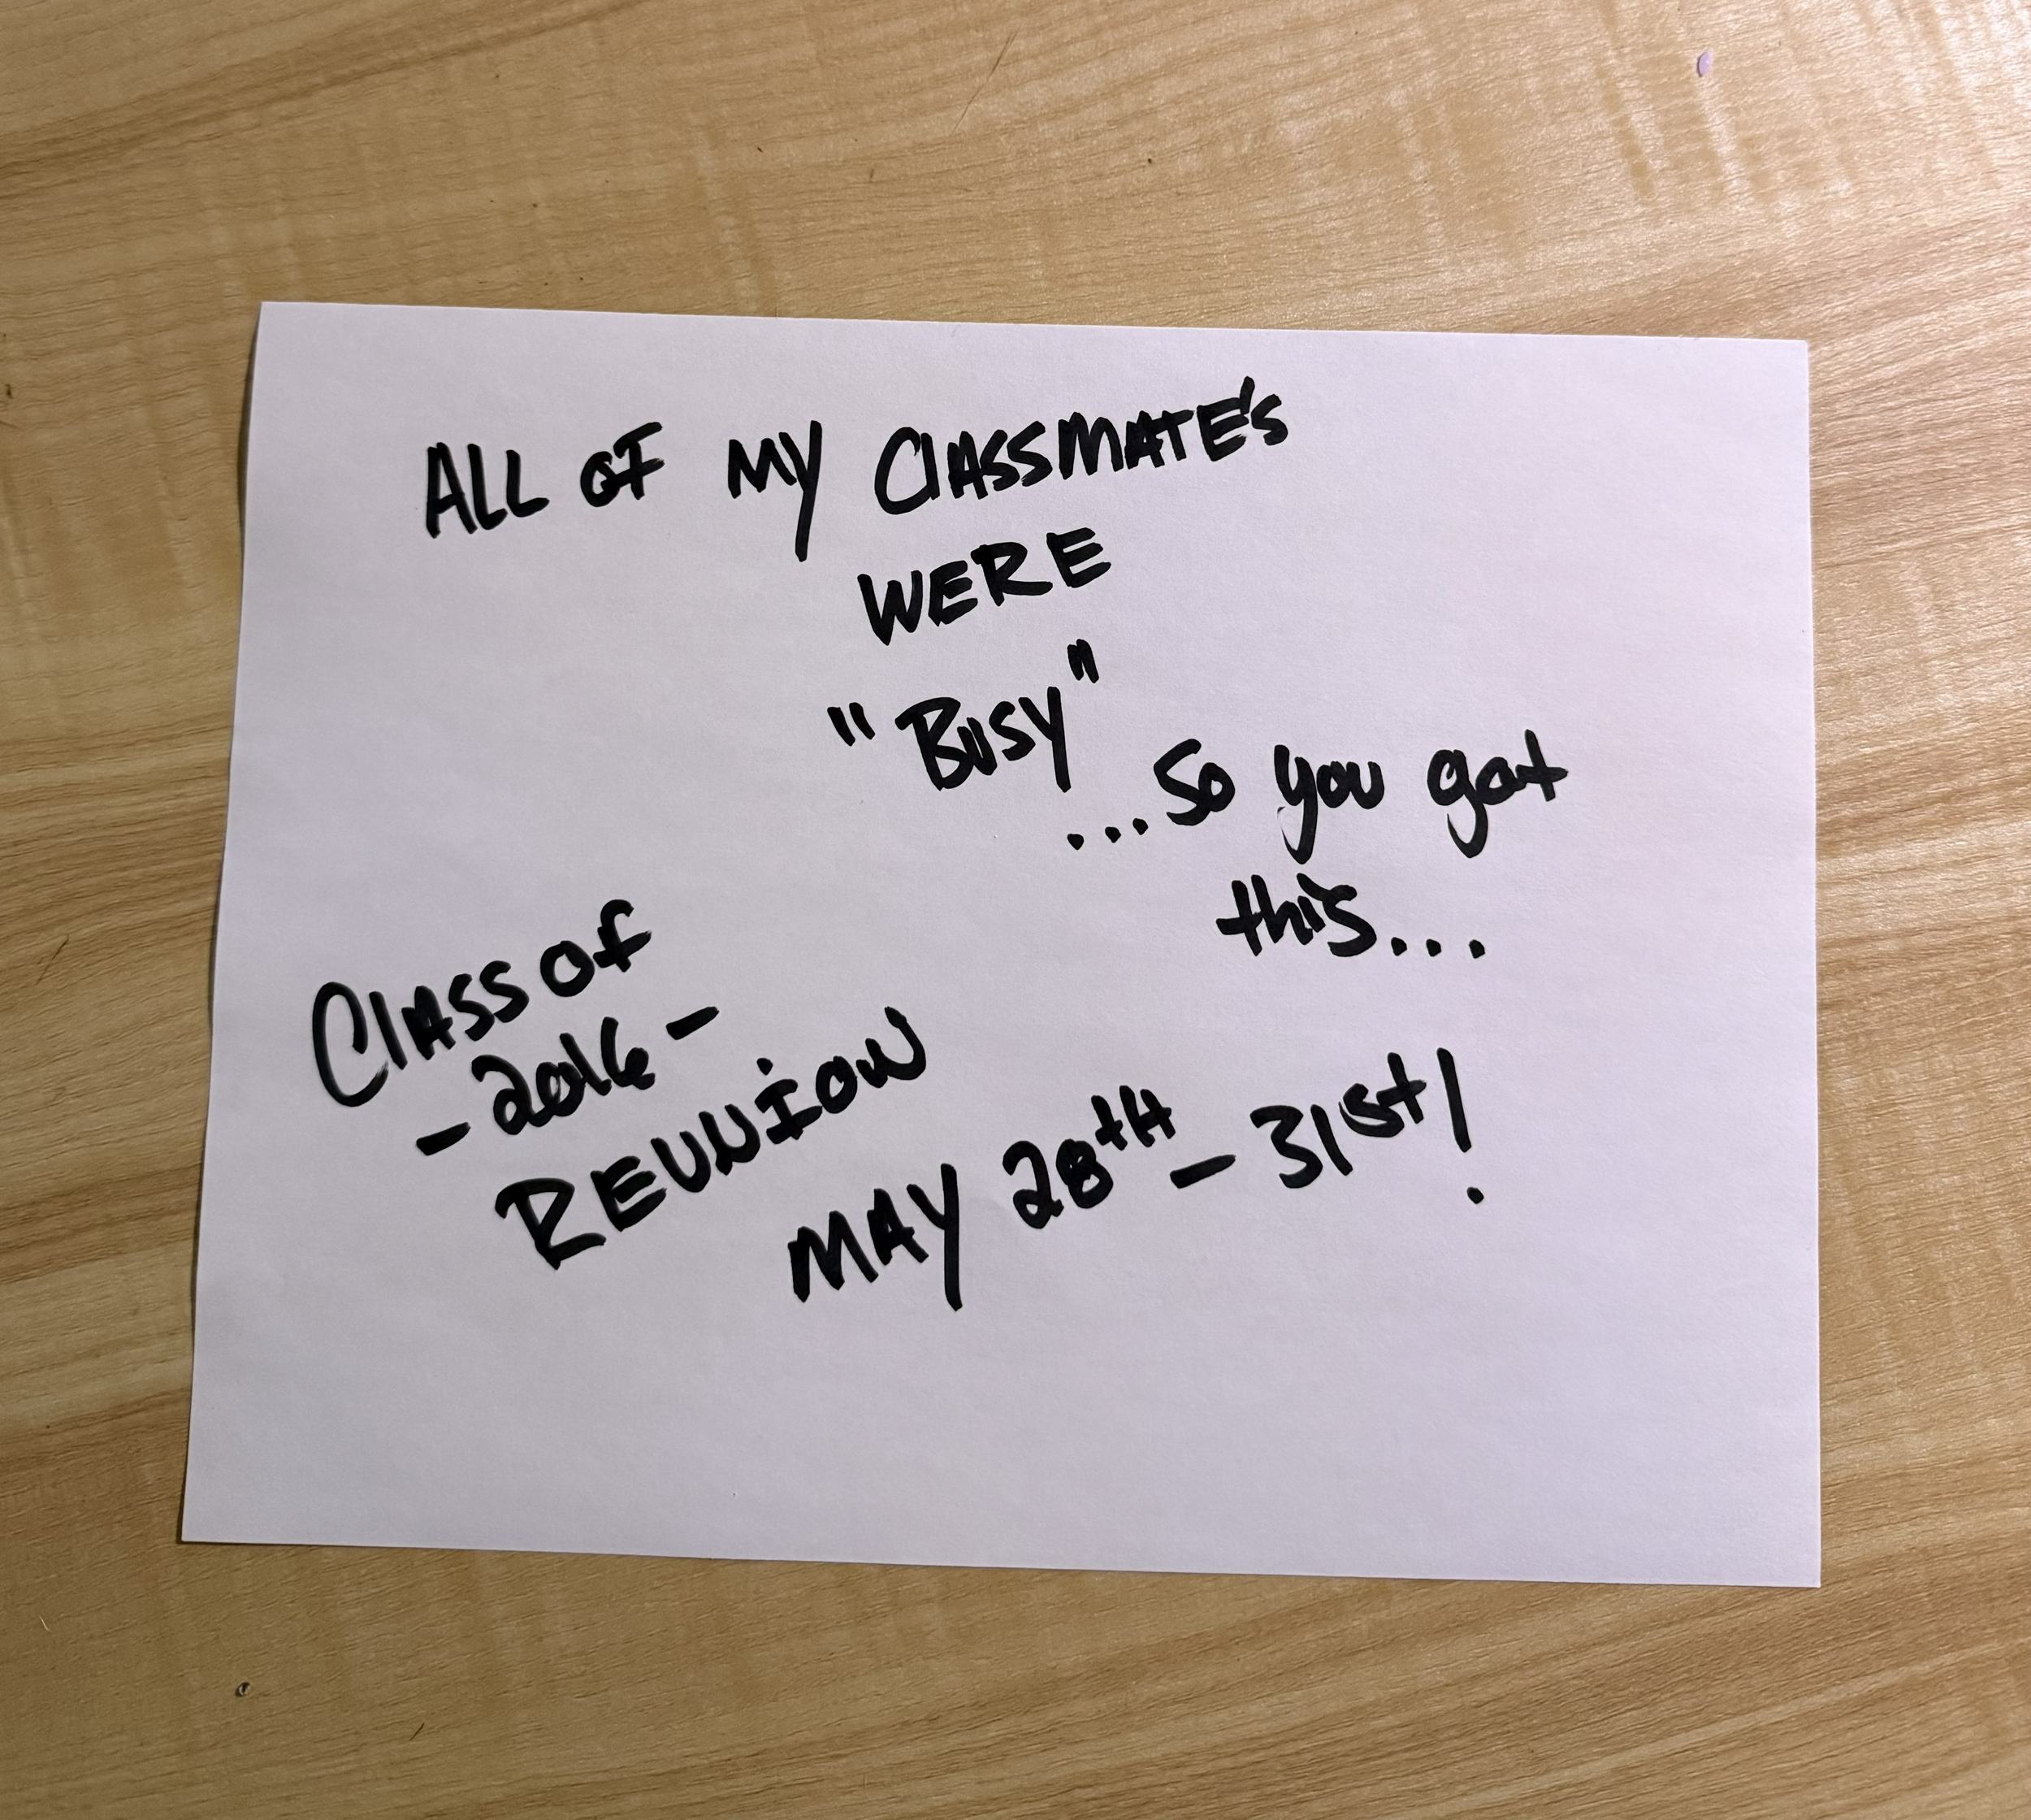 ALL OF MY ClASSMATE'S
WERE
"BUSY"
...So you got
this...
ClASS of
-2016-
REUNION
MAY 28tH - 31st!